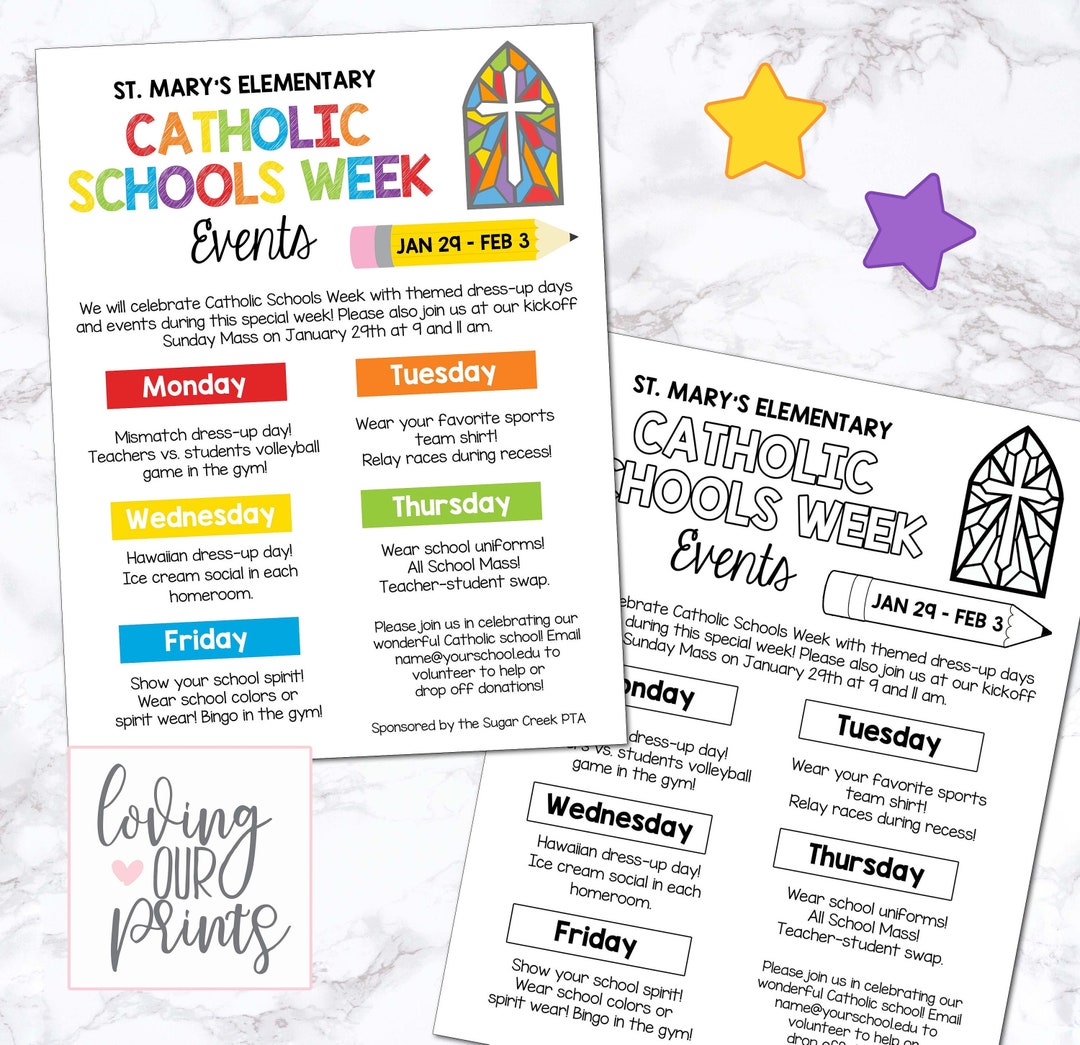 ST. MARY'S ELEMENTARY
CATHOLIC
SCHOOLS WEEK
Events
JAN 29 - FEB 3
We will celebrate Catholic Schools Week with themed dress-up days
and events during this special week! Please also join us at our kickoff
Sunday Mass on January 29th at 9 and 11 am.
Monday
Mismatch dress-up day!
Teachers vs. students volleyball
game in the gym!
Tuesday
Wear your favorite sports
team shirt!
Relay races during recess!
Wednesday
Hawaiian dress-up day!
Ice cream social in each
homeroom.
Thursday
Wear school uniforms!
All School Mass!
Teacher-student swap.
Friday
Show your school spirit!
Wear school colors or
spirit wear! Bingo in the gym!
Please join us in celebrating our
wonderful Catholic school! Email
name@yourschool.edu to
volunteer to help or
drop off donations!
Sponsored by the Sugar Creek PTA
loving
OUR
prints
ST. MARY'S ELEMENTARY
CATHOLIC
WEEK
Events
JAN 29 - FEB 3
Catholic Schools Week with themed dress-up days
during this special week! Please also join us at our kickoff
Sunday Mass on January 29th at 9 and 11 am.
dress-up day!
vs. students volleyball
game in the gym!
Tuesday
Wear your favorite sports
team shirt!
Relay races during recess!
Wednesday
Hawaiian dress-up day!
Ice cream social in each
homeroom.
Thursday
Wear school uniforms!
All School Mass!
Teacher-student swap.
Friday
Show your school spirit!
Wear school colors or
spirit wear! Bingo in the gym!
Please join us in celebrating our
wonderful Catholic school! Email
name@yourschool.edu to
volunteer to help or
drop